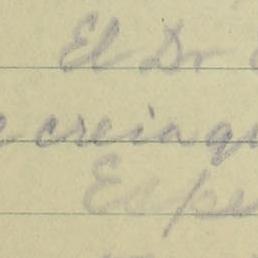 El Dr
creia qu
Espe